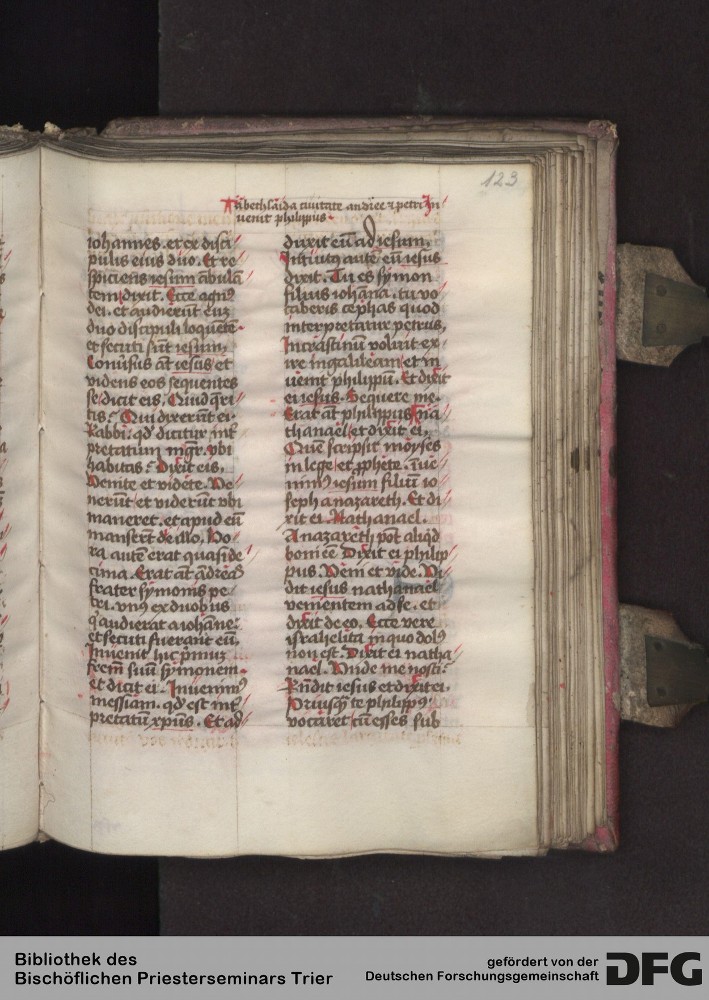 123
A bethsaida civitate andree et petri In
uenit philippus.
iohannes. et ex disci
pulis eius duo. Et re
spiciens iesum ābulā
tem dixit. Ecce agn9
dei. et audierūt eū
duo discipuli loquētē
et secuti sūt iesum.
Conūsus āt iesus et
videns eos sequentes
se dicit eis. Quid q̄ri
tis? Qui dixerūt ei.
Rabbi. qd̄ dicitur int̄
pretatum mgr̄. vbi
habitas? Dixit eis.
Venite et videte. Ve
nerūt et viderūt vbi
maneret. et apud eū
manserūt die illo. Ho
ra autē erat quasi de
cima. Erat āt ādreas
frater symonis pe
tri. vn9 ex duobus
q̄ audierāt a iohāne.
et secuti fuerant eū.
Inuenit hic p̄mū
frem̄ suū symonem.
et dicit ei. Inuenim9
messiam. qd̄ est int̄
pretatū xpūs. Et ad
duxit eū ad iesum.
Intuit9 autē eū iesus
dixit. Tu es symon
filius iohāna. tu vo
caberis cephas quod
interpretatur petrus.
In crastinū voluit ex
ire in galileam et in
uenit philippū. Et dixit
ei iesus. Sequere me.
Erat āt philippus na
thanael et dixit ei.
Quē scripsit moyses
in lege et p̄phete. īue
nim9 iesum filiū io
seph a nazareth. Et di
xit ei Nathanael.
A nazareth pōt aliqd̄
boni eē Dixit ei philip
pus. Veni et vide. Vi
dit iesus nathanael
venientem ad se. et
dixit de eo. Ecce vere
israhelita in quo dol9
non est. Dixit ei natha
nael. Vnde me nosti?
Rn̄dit iesus et dixit ei.
Priusq̄ te philipp9
vocaret cū esses sub
Bibliothek des
Bischöflichen Priesterseminars Trier
gefördert von der
Deutschen Forschungsgemeinschaft
DFG